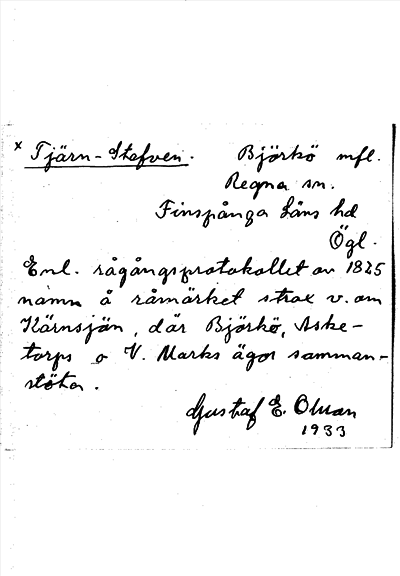 x Tjärn-Stafven.
Björkö mfl.
Regna sn.
Finspånga Läns hd
Ögl.
Enl. rågångsprotokollet av 1825
namn å råmärket strax v. om
Kärnsjön, där Björkö, Aske-
torps o V. Marks ägor samman-
stöta.
Gustaf E. Olson
1933